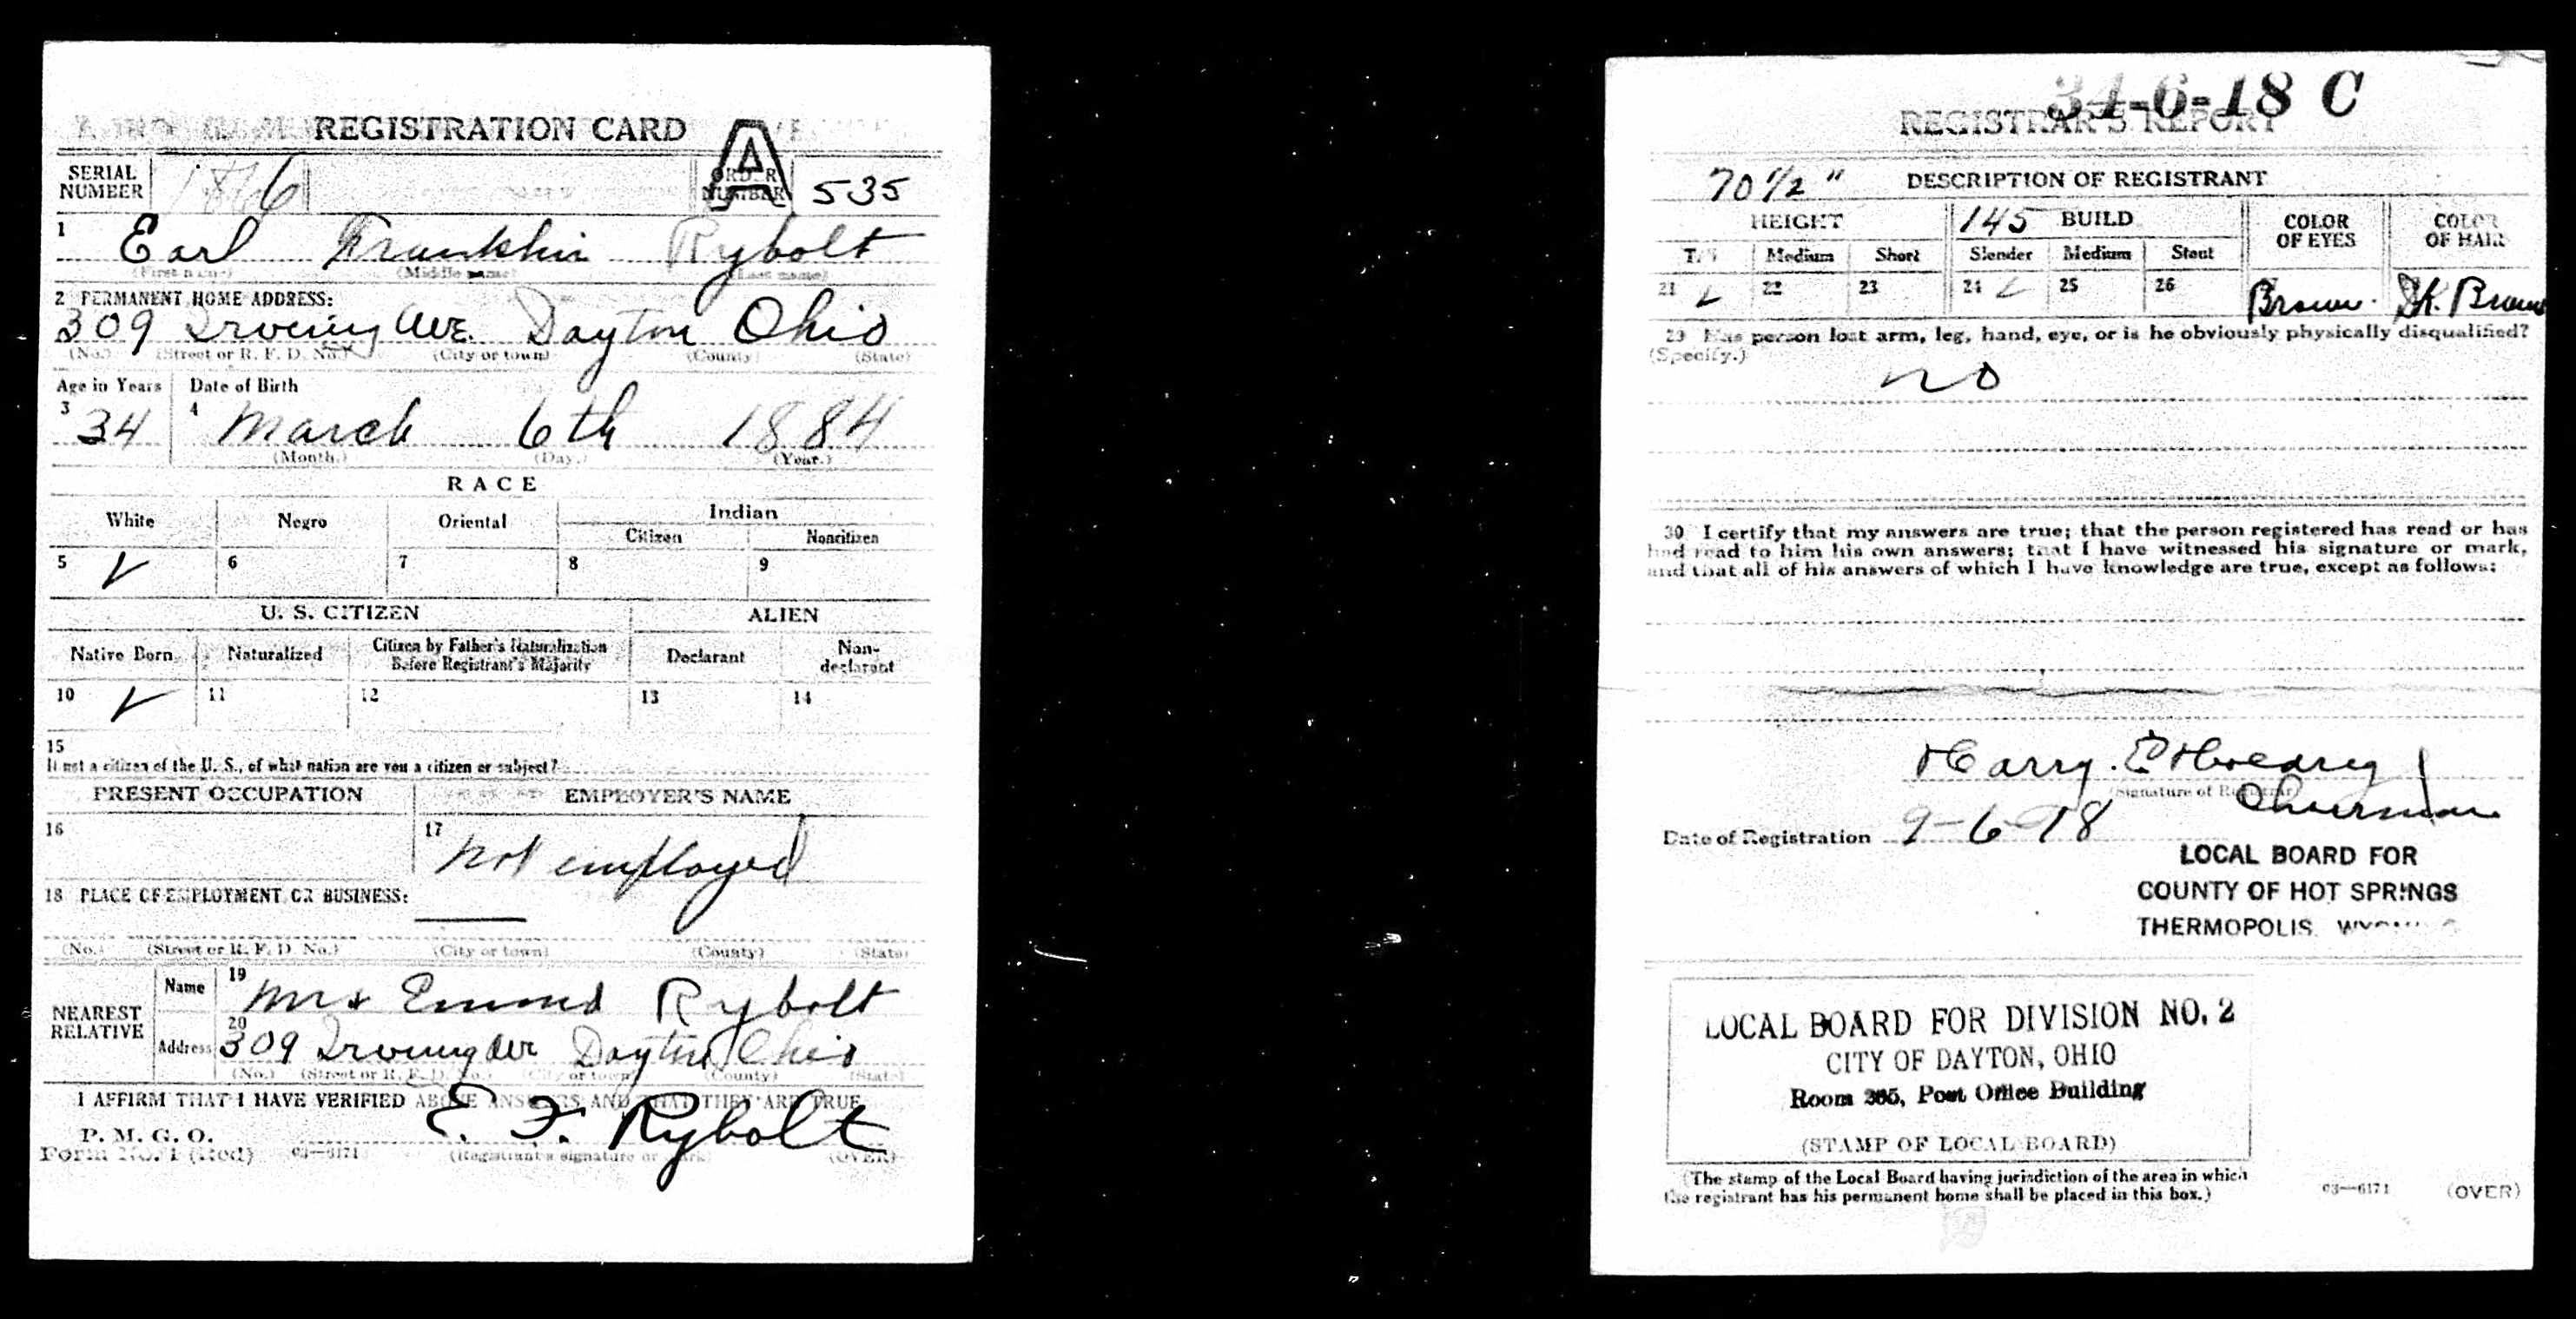 REGISTRATION CARD
SERIAL NUMBER
A
ORDER NUMBER 535
1 Earl Franklin Rybolt
(First name) (Middle name) (Last name)
2 PERMANENT HOME ADDRESS:
309 Irving Ave. Dayton Ohio
(No.) (Street or R. F. D. No.) (City or town) (County) (State)
Age in Years Date of Birth
3 34 4 March 6th 1884
(Month.) (Day.) (Year.)
RACE
White Negro Oriental Indian
Citizen Noncitizen
5 ✓ 6 7 8 9
U. S. CITIZEN ALIEN
Native Born Naturalized Citizen by Father's Naturalization Before Registrant's Majority Declarant Non-declarant
10 ✓ 11 12 13 14
15
If not a citizen of the U. S., of what nation are you a citizen or subject?
PRESENT OCCUPATION EMPLOYER'S NAME
16 17 not employed
18 PLACE OF EMPLOYMENT OR BUSINESS:
(No.) (Street or R. F. D. No.) (City or town) (County) (State)
NEAREST RELATIVE
Name 19 Mrs Rybolt
Address 20 309 Irving Ave Dayton Ohio
(No.) (Street or R. F. D. No.) (City or town) (County) (State)
I AFFIRM THAT I HAVE VERIFIED ABOVE ANSWERS AND THAT THEY ARE TRUE
E. F. Rybolt
P. M. G. O.
Form No. 1 (Red) 03—6171 (Registrant's signature or mark) (OVER)
34-6-18 C
REGISTRAR'S REPORT
70 1/2" DESCRIPTION OF REGISTRANT
HEIGHT 145 BUILD COLOR OF EYES COLOR OF HAIR
Tall Medium Short Slender Medium Stout
21 ✓ 22 23 24 ✓ 25 26 Brown Dk. Brown
29 Has person lost arm, leg, hand, eye, or is he obviously physically disqualified?
(Specify.)
no
30 I certify that my answers are true; that the person registered has read or has
had read to him his own answers; that I have witnessed his signature or mark,
and that all of his answers of which I have knowledge are true, except as follows:
Harry
(Signature of Registrar) Chairman
Date of Registration 9-6-18
LOCAL BOARD FOR
COUNTY OF HOT SPRINGS
THERMOPOLIS
LOCAL BOARD FOR DIVISION NO. 2
CITY OF DAYTON, OHIO
Room 305, Post Office Building
(STAMP OF LOCAL BOARD)
(The stamp of the Local Board having jurisdiction of the area in which
the registrant has his permanent home shall be placed in this box.)
03—6171 (OVER)